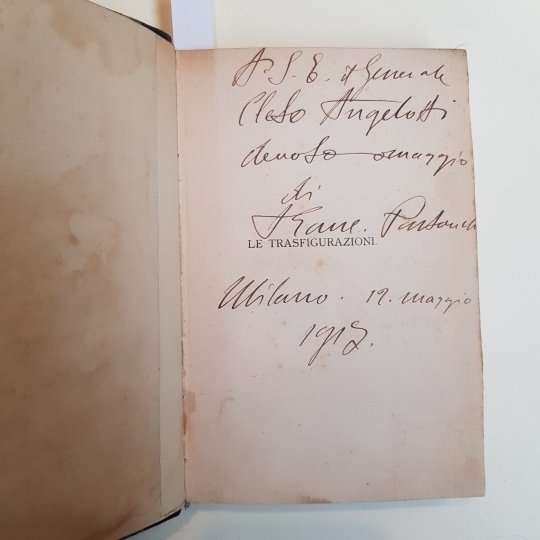 A S. E. il Generale
Celso Angelotti
devoto omaggio
di
Pastonch
LE TRASFIGURAZIONI.
Milano. 12. maggio
1917.